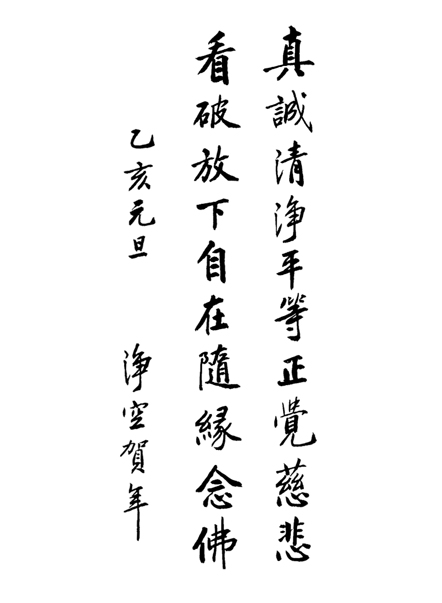 真誠清淨平等正覺慈悲
看破放下自在隨緣念佛
乙亥元旦 淨空賀年